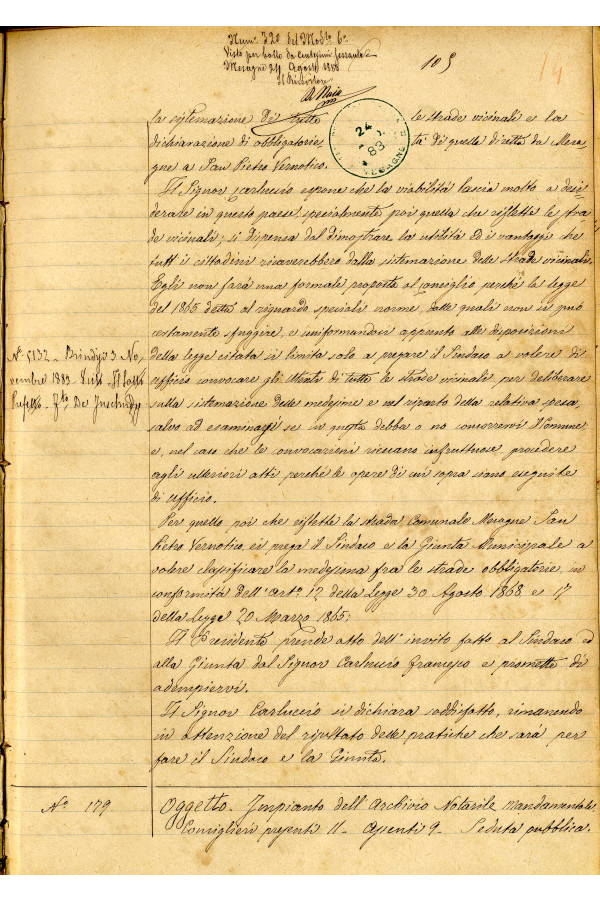 Num. 320 del Mod.lo 6°
Visto per bollo da Centesimi sessanta
Mesagne 24 Agosto 1883
Il Ricevitore
109
14
24
83
MESAGNE
la sistemazione di tutte le strade vicinali e la
dichiarazione di obbligatorietà di quelle diretta da Mesa-
gne a San Pietro Vernotico.
Il Signor Carluccio espone che la viabilità lascia molto a desi-
derare in questo paese specialmente poi quella che riflette le stra
de vicinali; si dispensa dal dimostrare la utilità ed i vantaggi che
tutt'i cittadini ricaverebbero dalla sistemazione delle strade vicinali.
Egli non farà una formale proposta al consiglio perché la legge
del 1865 detta al riguardo speciali norme, dalle quali non si può
certamente sfuggire, e uniformandosi appunto alle disposizioni
della legge citata si limita solo a pregare il Sindaco a volere di
ufficio convocare gli utenti di tutte le strade vicinali per deliberare
sulla sistemazione delle medesime e nel riparto della relativa spesa,
salvo ad esaminarsi se in quota debba o no concorrervi il Comune
e, nel caso che le convocazioni riescano infruttuose, procedere
agli ulteriori atti perché le opere di cui sopra siano eseguite
di ufficio.
Per quello poi che riflette la strada Comunale Mesagne San
Pietro Vernotico, si prega il Sindaco e la Giunta Municipale a
volere classificare la medesima fra le strade obbligatorie, in
conformità dell'art.° 12 della Legge 30 Agosto 1868 e 17
della Legge 20 Marzo 1865;
Il Presidente prende atto dell'invito fatto al Sindaco ed
alla Giunta dal Signor Carluccio Francesco e promette di
adempiervi.
Il Signor Carluccio si dichiara soddisfatto, rimanendo
in attenzione del risultato delle pratiche che sarà per
fare il Sindaco e la Giunta.
N° 5132 - Brindisi 3 No-
vembre 1883 - Visto Il Sotto
Prefetto - F.to De
N° 179
Oggetto. Impianto dell'Archivio Notarile mandamentale
Consiglieri presenti 11 - Assenti 9 - Seduta pubblica.